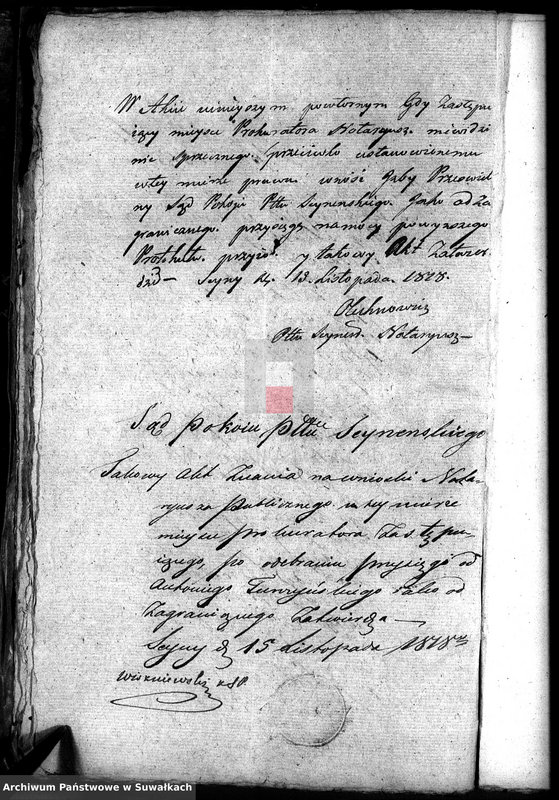 W Akcie ninieyszym powtornym Gdy Zastępu
iący mieysce Prokuratora Notaryusz niewidzi
nic sprzecznego przeciwko ustanowionemu
w tey mierze prawu wnosi Żeby Prześwie
ny Sąd Pokoju Pttu Seynenskiego odza
granicznego przysięgę na mocy powyższego
Protokułu przyiął y takowy Akt Zatwier
dził — Seyny d. 13 Listopada 1828.
Pttu Seynen. Notaryusz —
Sąd Pokoiu Pttu Seynenskiego
Takowy Akt Znania na wniosek Nota-
ryusza Publicznego w tey mierze
mieysce prokuratora Zastępu-
iącego, po odebraniu przysięgi od
Antoniego iako od
Zagranicznego Zatwierdza —
Seyny d 15 Listopada 1828
Wiszniewski
Archiwum Państwowe w Suwałkach